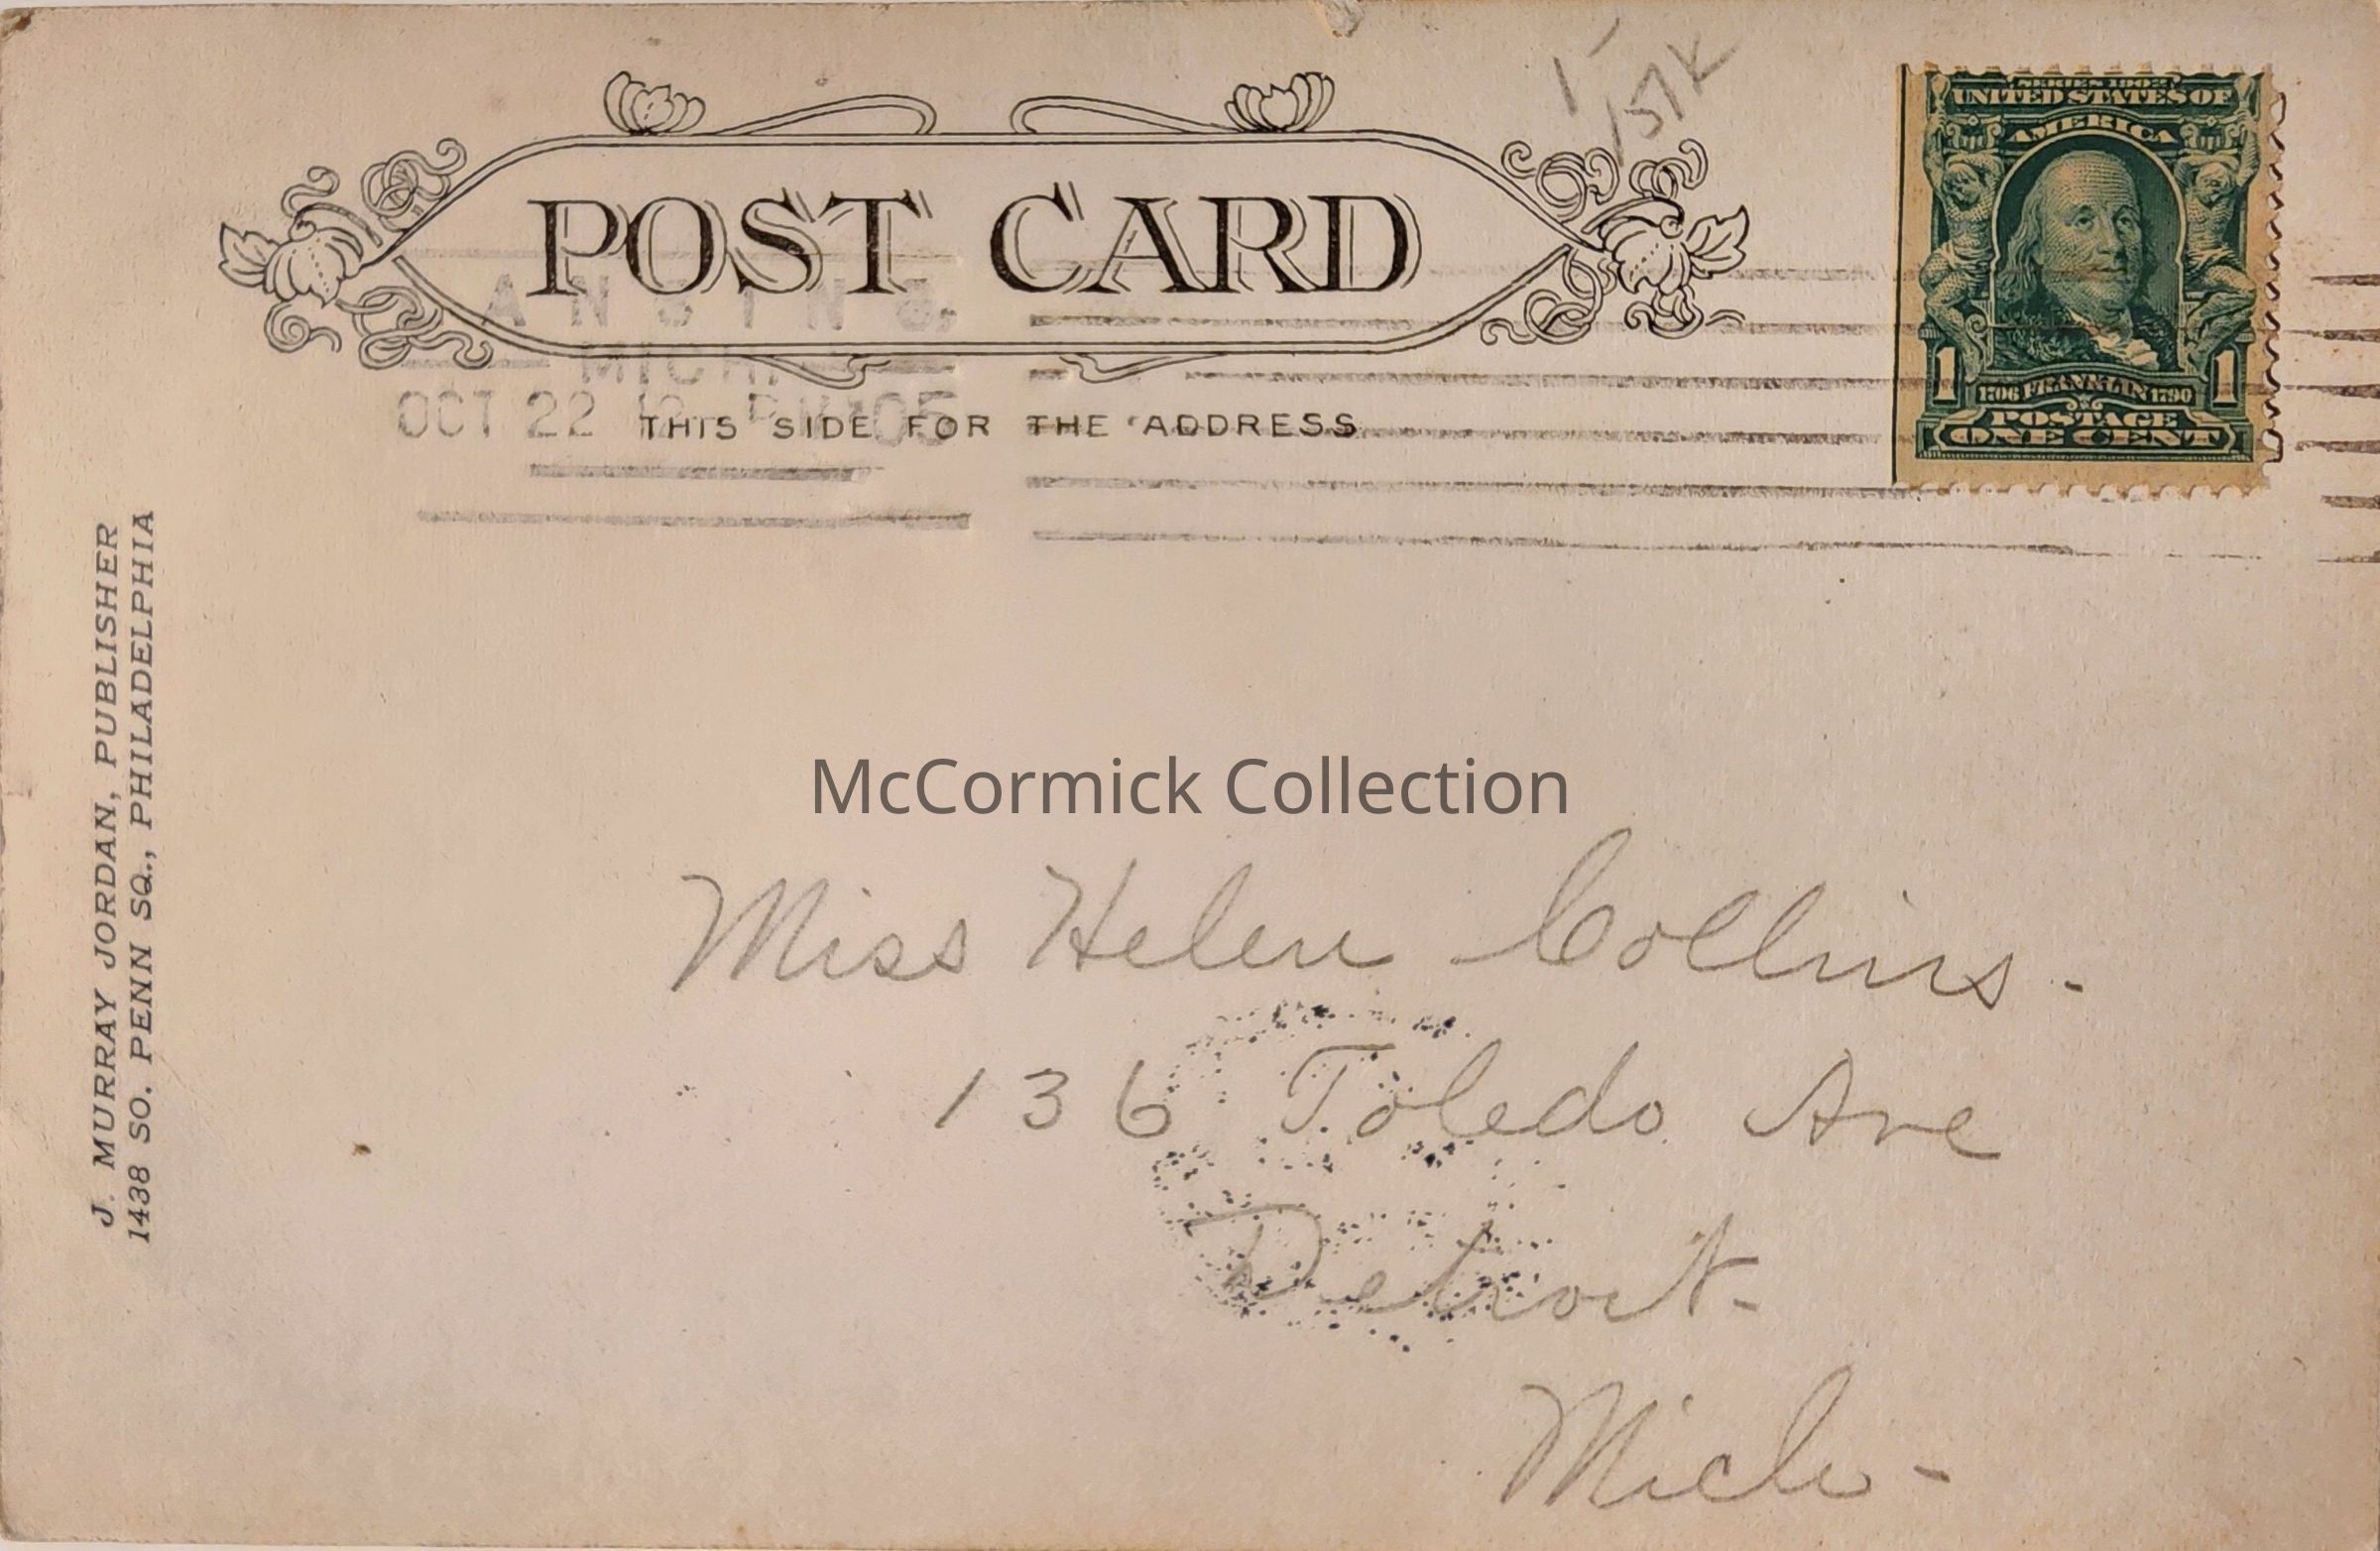 1-
157K
SERIES 1902
UNITED STATES OF
AMERICA
1 1
1706 FRANKLIN 1790
POSTAGE
ONE CENT
POST CARD
ANSING
MICH.
OCT 22 12 PM 05
THIS SIDE FOR THE ADDRESS
J. MURRAY JORDAN, PUBLISHER
1438 SO. PENN SQ., PHILADELPHIA
McCormick Collection
Miss Helen Collins.
136 Toledo Ave
Detroit-
Mich-